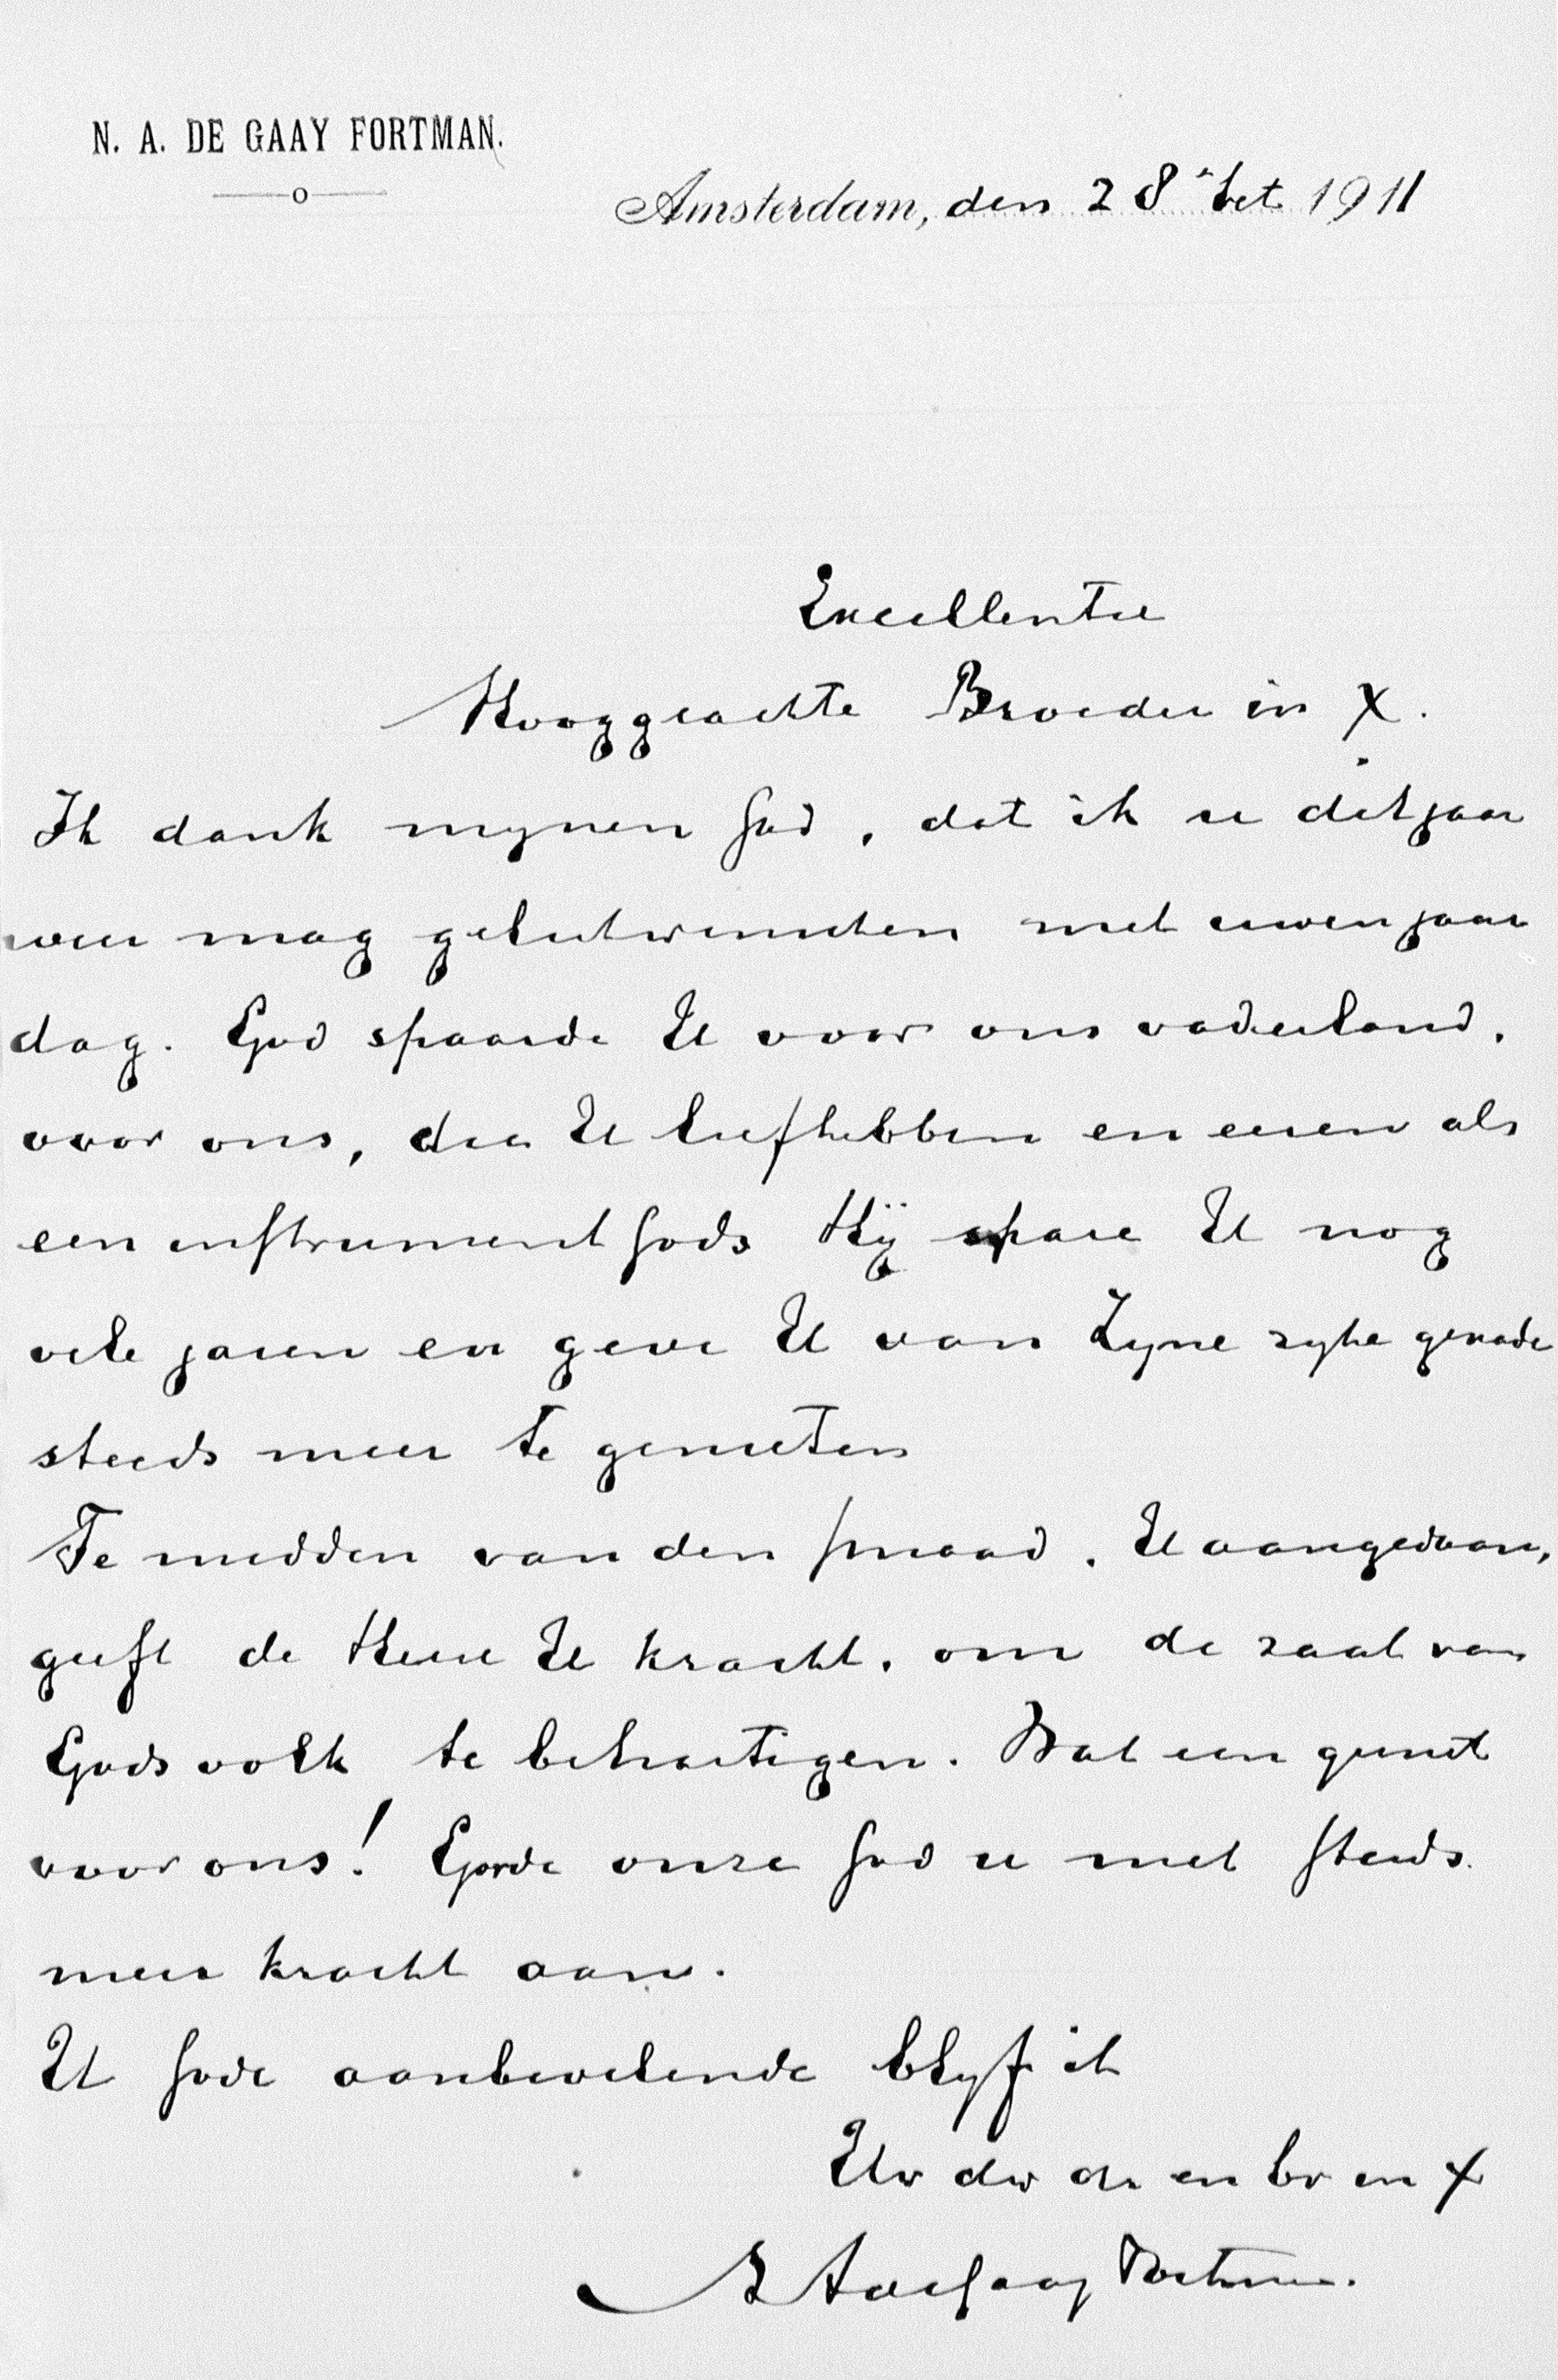 N. A. DE GAAY FORTMAN.
Amsterdam, den 28 Oct. 1911
Excellentie
Hooggeachte Broeder in X.
Ik dank mynen God, dat ik u dit jaar
weer mag gelukwenschen met uwen jaar
dag. God spaarde U voor ons vaderland,
voor ons, die U liefhebben en eeren als
een instrument Gods Hij spare U nog
vele jaren en geve U van Zyne ryke genade
steeds meer te genieten
Te midden van den smaad, U aangedaan,
geeft de Heere U kracht, om de zaak van
Gods volk te behartigen. Wat een gunst
voor ons! Gorde onze God u met steeds
meer kracht aan.
U Gode aanbevelende blyf ik
Uw dw dr en br in X
N A de Gaay Fortman.